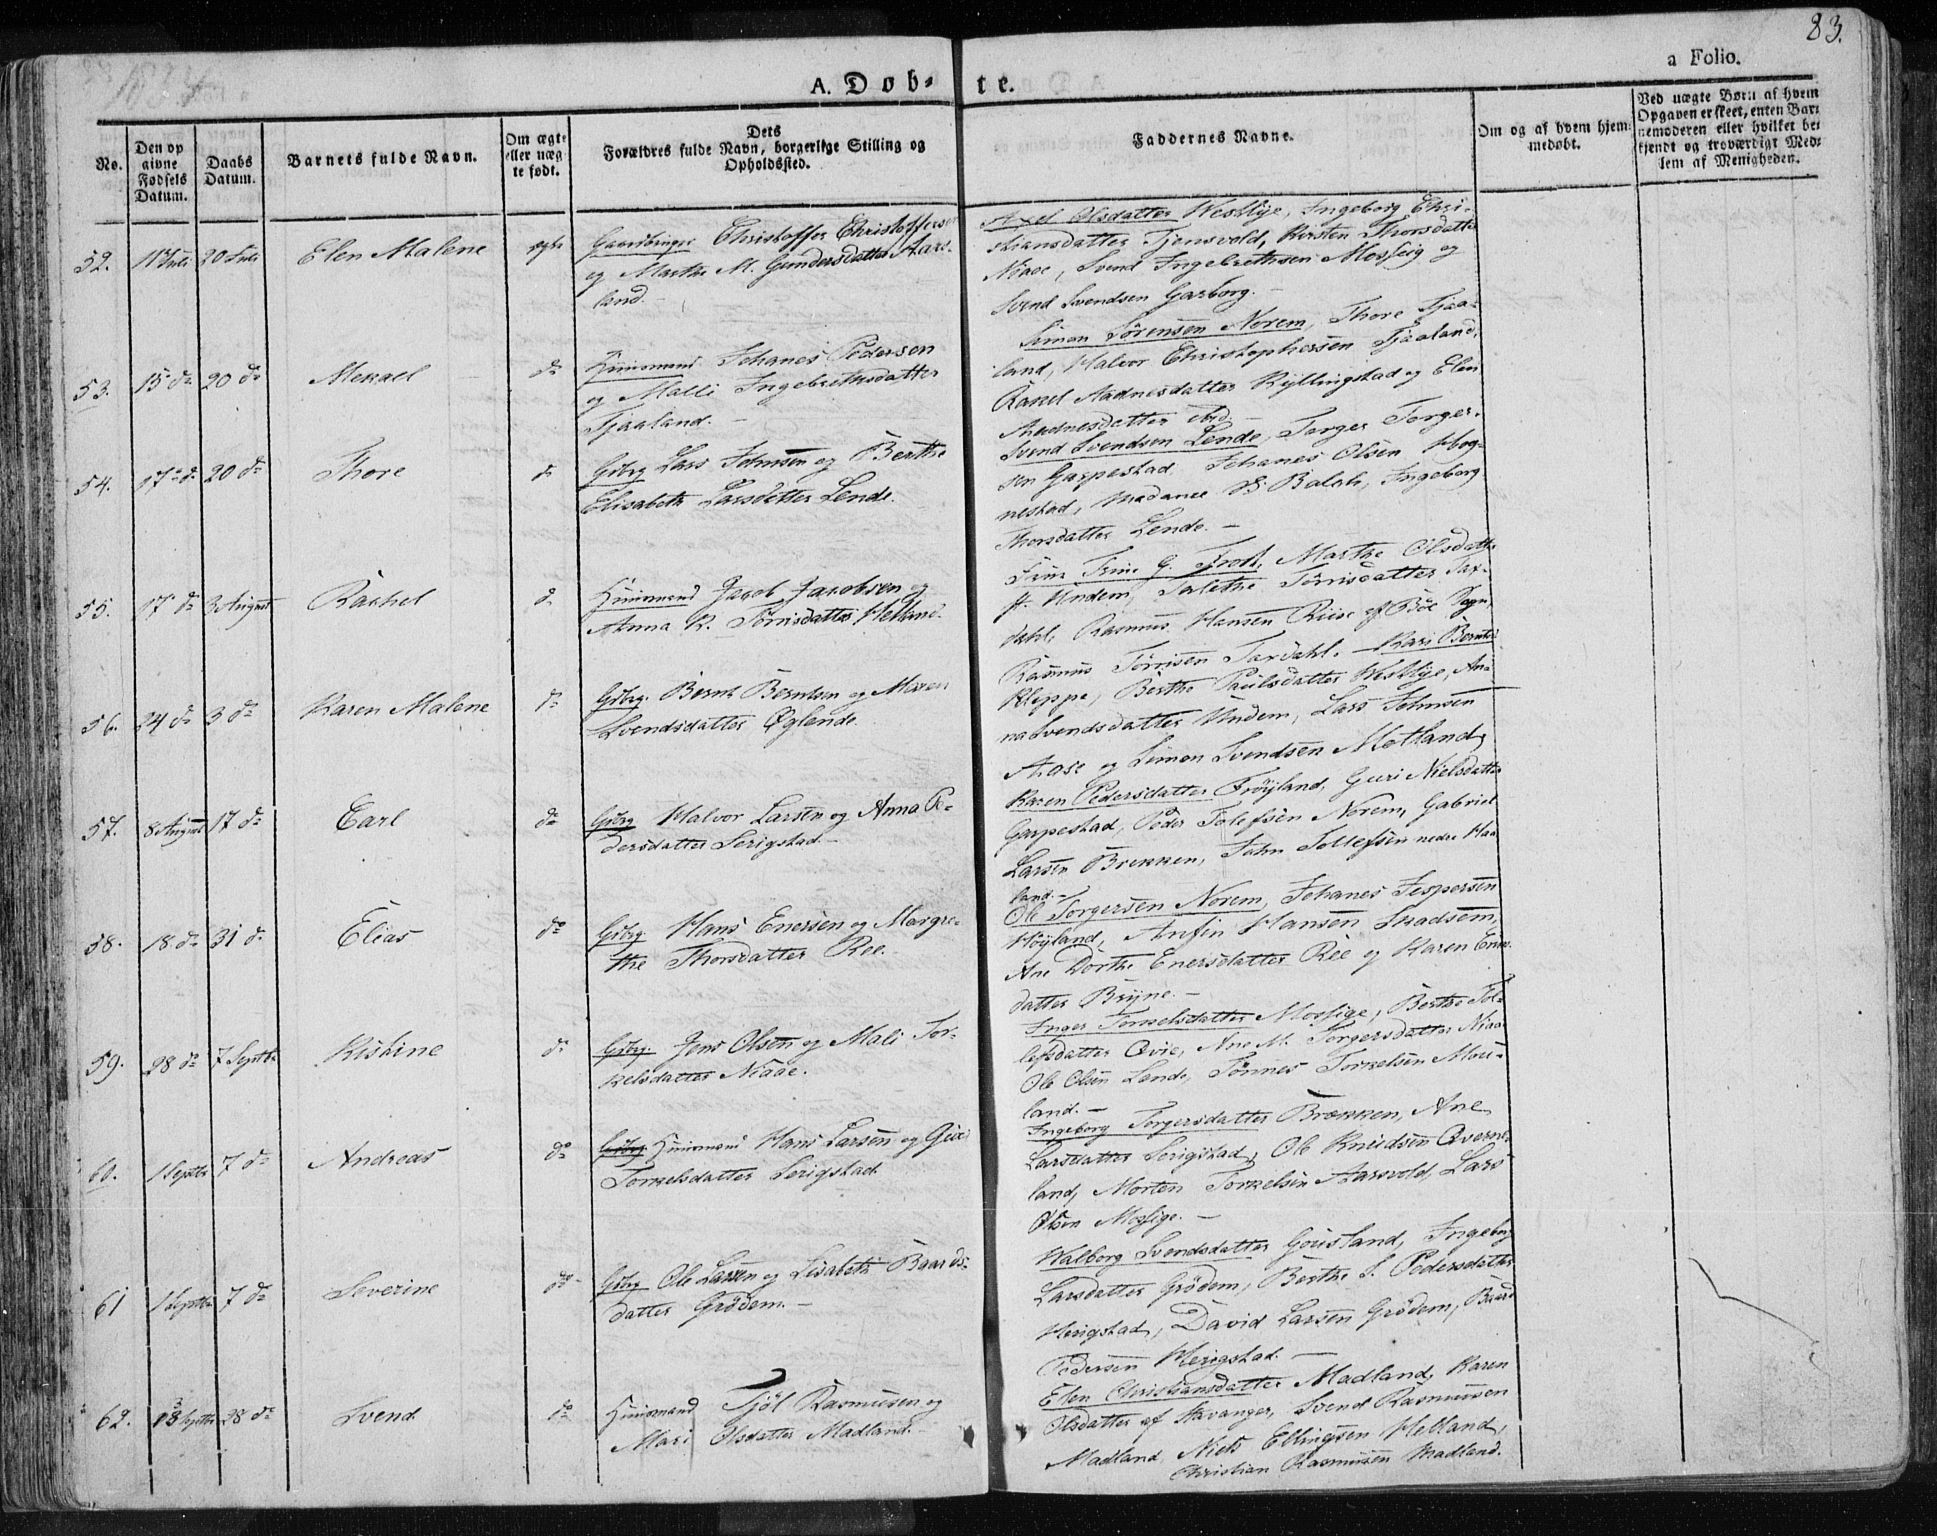 83.
a Folio.
1834
A. Døb-
te.
No.
Den op
givne
Fødsels
Datum.
Daabs
Datum.
Barnets fulde Navn.
Om ægte
eller uæg
te født.
Dets
Forældres fulde Navn, borgerlige Stilling og
Opholdssted.
Faddernes Navne.
Om og af hvem hjem
medøbt.
Ved uægte Børn af hvem
Opgaven er skeet, enten Bar
nemoderen eller hvilket be
kjendt og troværdigt Med
lem af Menigheden.
52. 11 Juli 20 Juli Elen Malene ægte
Gaardbruger Christoffer Christoffers
og Marthe M. Gundersdatter Aars-
land.
Axel Olsdatter Westlye, Ingeborg Chri-
stiansdatter Tjensvold, Kirsten Thorsdatter
Niaae, Svend Ingebrethsen Mossig og
Svend Svendsen Garborg.
53. 15 do 20 do Mekael do
Huusmand Johanes Pedersen
og Malli Ingebrethsdatter
Tjaaland.
Simon Sørensen Norem, Thore Tjaa-
land, Halvor Christophersen Tjaaland,
Rakel Aadnesdatter Kyllingstad og Elen
Aadnesdatter ibd.
54. 17 do 20 do Thore do
Gdbrg Lars Johnsen og Berthe
Elisabeth Larsdatter Lende.
Svend Svendsen Lende, Torger Torger-
sen Garpestad, Johanes Olsen Hog-
nestad, Madame B. Balch, Ingeborg
Thorsdatter Lende.
55. 17 do 3 August Rachel do
Huusmand Jacob Jacobsen og
Anna K. Tørrisdatter Helland.
Trine G. Trost, Marthe Olsdatter
p. Undem, Talethe Tørrisdatter Tax-
dahl, Rasmus Hansen Riise af Bøe Sogn,
Rasmus Tørrisen Taxdahl.
56. 24 do 3 do Karen Malene do
Gdbrg. Bernt Berntsen og Maren
Svendsdatter Øglende.
Kari Berntsd
Kleppe, Berthe Paulsdatter Westlye, An-
na Svendsdatter Undem, Lars Johnsen
Aase og Simon Svendsen Motland,
57. 8 August 17 do Carl do
Gdbrg Halvor Larsen og Anna Pe-
dersdatter Serigstad.
Karen Pedersdatter Frøyland, Guri Nielsdatter
Garpestad, Peder Tolefsen Norem, Gabriel
Larsen Brekken, John Tollefsen nedre Haa-
land.
58. 18 do 31 do Elias do
Gdbrg. Hans Enersen og Margre-
the Thorsdatter Ree.
Ole Torgersen Norem, Johanes Jespersen
Høyland, Anfin Hansen Skadsem,
Ane Dorthe Enersdatter Ree og Karen Eners-
datter Bryne.
59. 28 do 7 Septbr Kistine do
Gdbrg. Jens Olsen og Mali Tor-
kelsdatter Niaae.
Inger Torkelsdatter Mossige, Berthe Tol-
lefsdatter Qvie, Ane M. Torgersdatter Niaae
Ole Olsen Lende, Tønnes Torkelsen Mou-
land.
60. 1 Septbr 7 do Andreas do
Gdbrg Huusmand Hans Larsen og Guri
Torkelsdatter Serigstad.
Ingeborg Torgersdatter Brækken, Ane
Larsdatter Serigstad, Ole Knudsen Qverne-
land, Morten Torkelsen Aarsvold, Lars
Olsen Mossige.
61 1 Septbr 7 do Severine do
Gdbrg Ole Larsen og Lisabeth Baards-
datter Grødem.
Walborg Svendsdatter Gousland, Ingeborg
Larsdatter Grødem, Berthe S. Pedersdatter
Herigstad, David Larsen Grødem, Baard
Pedersen Herigstad.
62. Septbr 28 do Svend do
Huusmand Tjøl Rasmussen og
Mari Olsdatter Madland.
Elen Christiansdatter Madland, Karen
Olsdatter af Stavanger, Svend Rasmussen
Madland, Niels Ellingsen Helland,
Christian Rasmussen Madland.